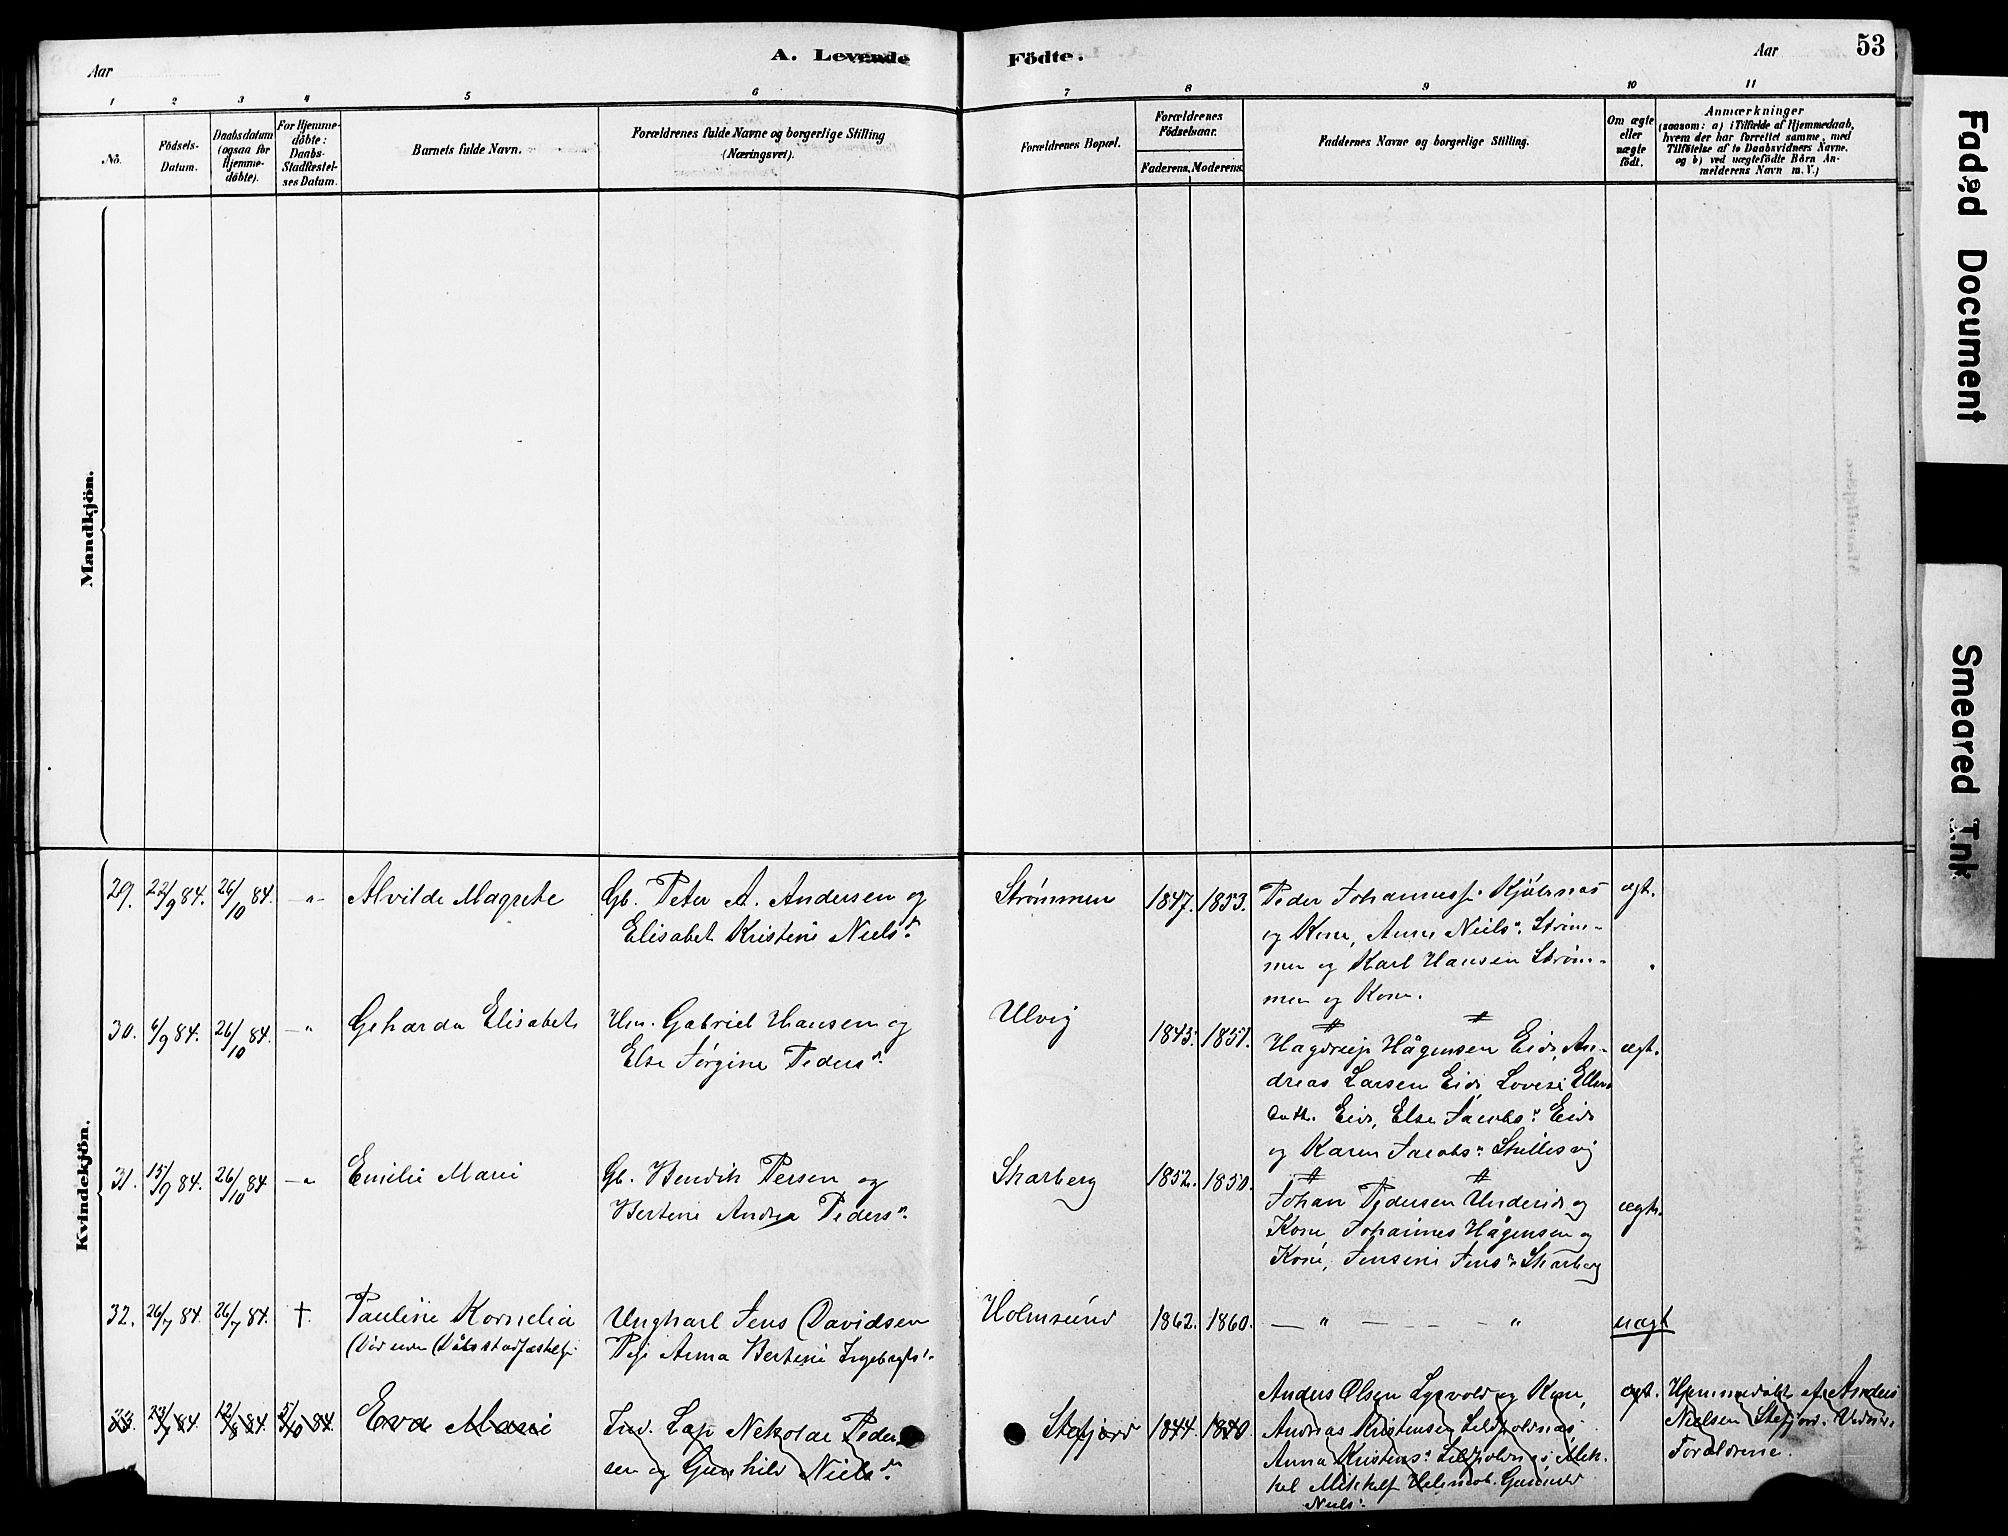 Aar
A. Levende
Födte.
Aar
53
1 2 3 4 5 6 7 8 9 10 11
No.
Födsels-
Datum.
Daabsdatum
(ogsaa for
Hjemme-
döbte).
For Hjemme-
döbte:
Daabs-
Stadfæstel-
ses Datum.
Barnets fulde Navn.
Forældrenes fulde Navne og borgerlige Stilling
(Næringsvei).
Forældrenes Bopæl.
Forældrenes
Födselsaar.
Faderens. Moderens.
Faddernes Navne og borgerlige Stilling.
Om ægte
eller
uægte
födt.
Anmærkninger
(saasom: a) i Tilfælde af Hjemmedaab,
hvem der har forrettet samme, med
Tilföielse af to Daabsvidners Navne,
og b) ved uægtefödte Börn An-
melderens Navn m. V.)
Mandkjön.
Kvindekjön.
29. 22/9 84. 26/10 84. -"- Alvilde Magrete
Gb. Peter A. Andersen og
Elisabet Kristine Nielsd.
Strømmen 1847. 1853.
Peder Johanness. Kjölsnæs
og Kone, Anne Nielsd. Strøm-
men og Karl Hansen Strøm-
men og Kone.
ægt.
30. 6/9 84. 26/10 84. -"- Geharda Elisabet
Hm. Gabriel Hansen og
Else Jørgine Pedersd.
Ulvig 1843. 1851.
Hågensen Eid, An-
dreas Larsen Eid, Lovise Ellens
datt. Eid, Else Jacobsd. Eid
og Karen Jacobsd. Skillesvig
ægt.
31. 15/9 84. 26/10 84 -"- Emilie Marie
Gb. Bendik Persen og
Bertine Andrea Pedersd.
Skarberg 1852. 1850.
Johan Pedersen Undereid og
Kone, Johannes Hågensen og
Kone, Jensine Jensd. Skarberg
ægt.
32. 26/7 84. 26/7 84. † Pauline Kornelia
(Död uden Dåbsstadfæstelse
Ungkarl Jens Davidsen
Pige Anna Bertine Ingebrigtsd.
Holmsund 1862. 1860. — " — — — — "
uægt
33. 23/7 84 12/8 84. 5/10 84. Eva Marie
Ind. Lap Nekolai Peder-
sen og Gunhild Nielsd.
Stefjord 1844. 1840
Anders Olsen Lysvold og Kone,
Andreas Kristensen
Anna Kristensd. Mik-
kel Mikkels.
Nielsd.
ægt.
Hjemmedöbt af Anders
Nielsen Stefjord. Vidner:
Forældrene.
Faded Document
Smeared Ink